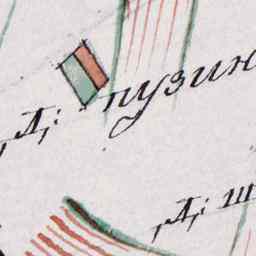 Д: пузин
Д: ш